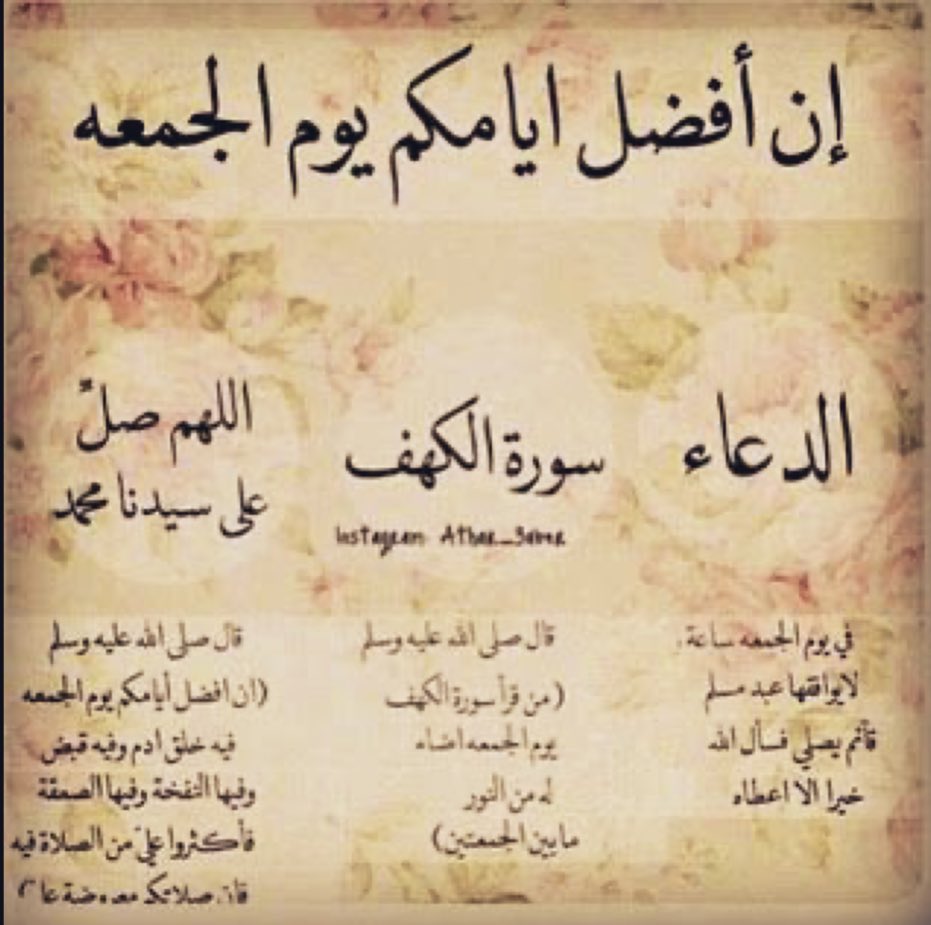 إن أفضل ايامكم يوم الجمعه
الدعاء
في يوم الجمعه ساعة.
لايوافقها عبد مسلم
قأئم يصلي فسأل الله
خيرا الا اعطاه
سورة الكهف
Instagram Athar_
قال صلى الله عليه وسلم
(من قرأ سورة الكهف
يوم الجمعه اضاء
له من النور
مابين الجمعتين)
اللهم صلِّ
على سيدنا محمد
قال صلى الله عليه وسلم
(ان افضل أيامكم يوم الجمعه
فيه خلق ادم وفيه قبض
وفيها النفخة وفيها الصعقة
فأكثروا عليّ من الصلاة فيه
فان صلاتكم معروضة